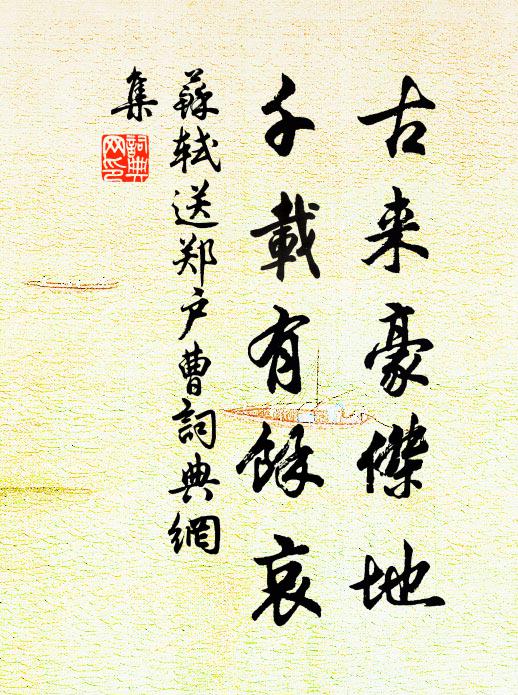 古来豪傑地
千載有餘哀
蘇軾送郑户曹詞典網
集
詞典
网印